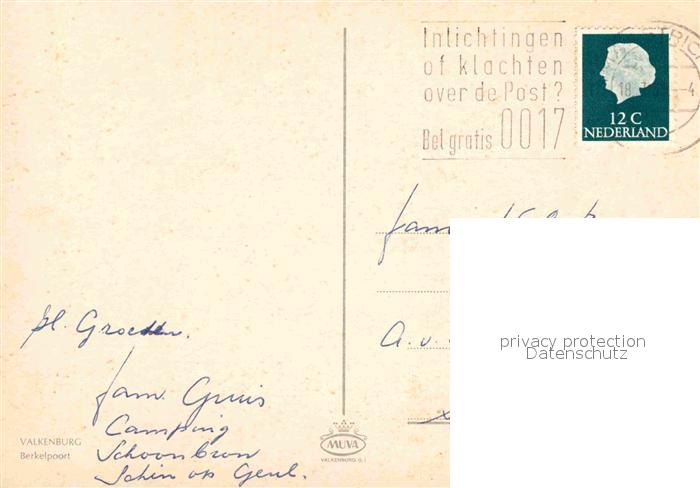 Inlichtingen
of klachten
over de Post?
Bel gratis 0017
12 C
NEDERLAND
18
-4
Fam.
A. v.
privacy protection
Datenschutz
Hl. Groeten.
Fam. Gruis
Camping
Schoonbron
Schin op Geul.
VALKENBURG
Berkelpoort
MUVA
VALKENBURG (L.)